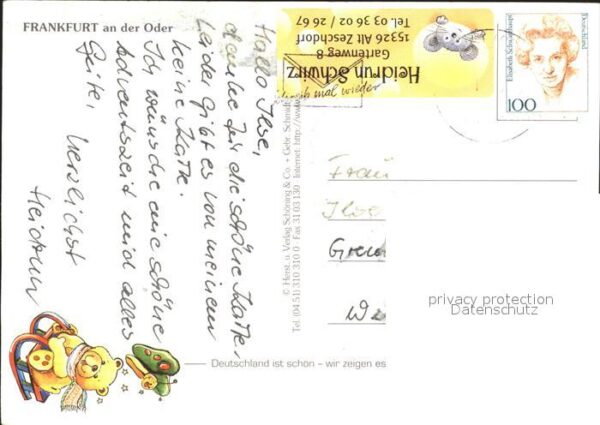 FRANKFURT an der Oder
Hallo Ilse,
danke für die schöne Karte.
Leider gibt es von meinem
keine Karte.
Ich wünsche eine schöne
Adventszeit und alles
Gute,
Herzlichst
Heidrun
Heidrun Schwirz
Gartenweg 8
15326 Alt Zeschdorf
Tel. 03 36 02 / 26 67
mal wieder
Elisabeth Schwarzhaupt
Deutschland
100
© Herst. u. Verlag Schöning & Co. + Gebr. Schmidt
Tel. (04 51) 310 310 0 Fax 31 03 130 Internet: http://www
Frau
Ilse
privacy protection
Datenschutz
Deutschland ist schön – wir zeigen es